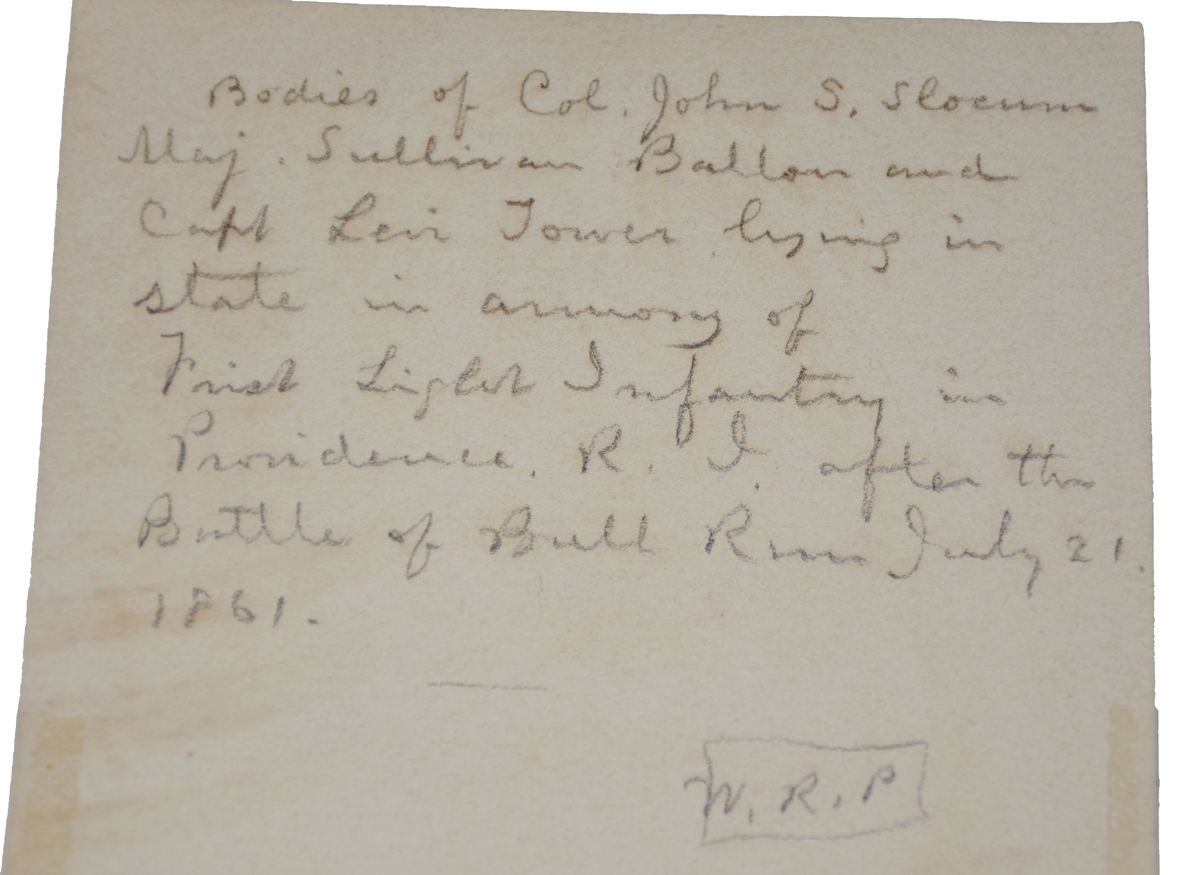 Bodies of Col. John S. Slocum
Maj. Sullivan Ballou and
Capt Levi Tower lying in
state in armory of
First Light Infantry in
Providence. R. I. after the
Battle of Bull Run July 21.
1861.
W. R. P